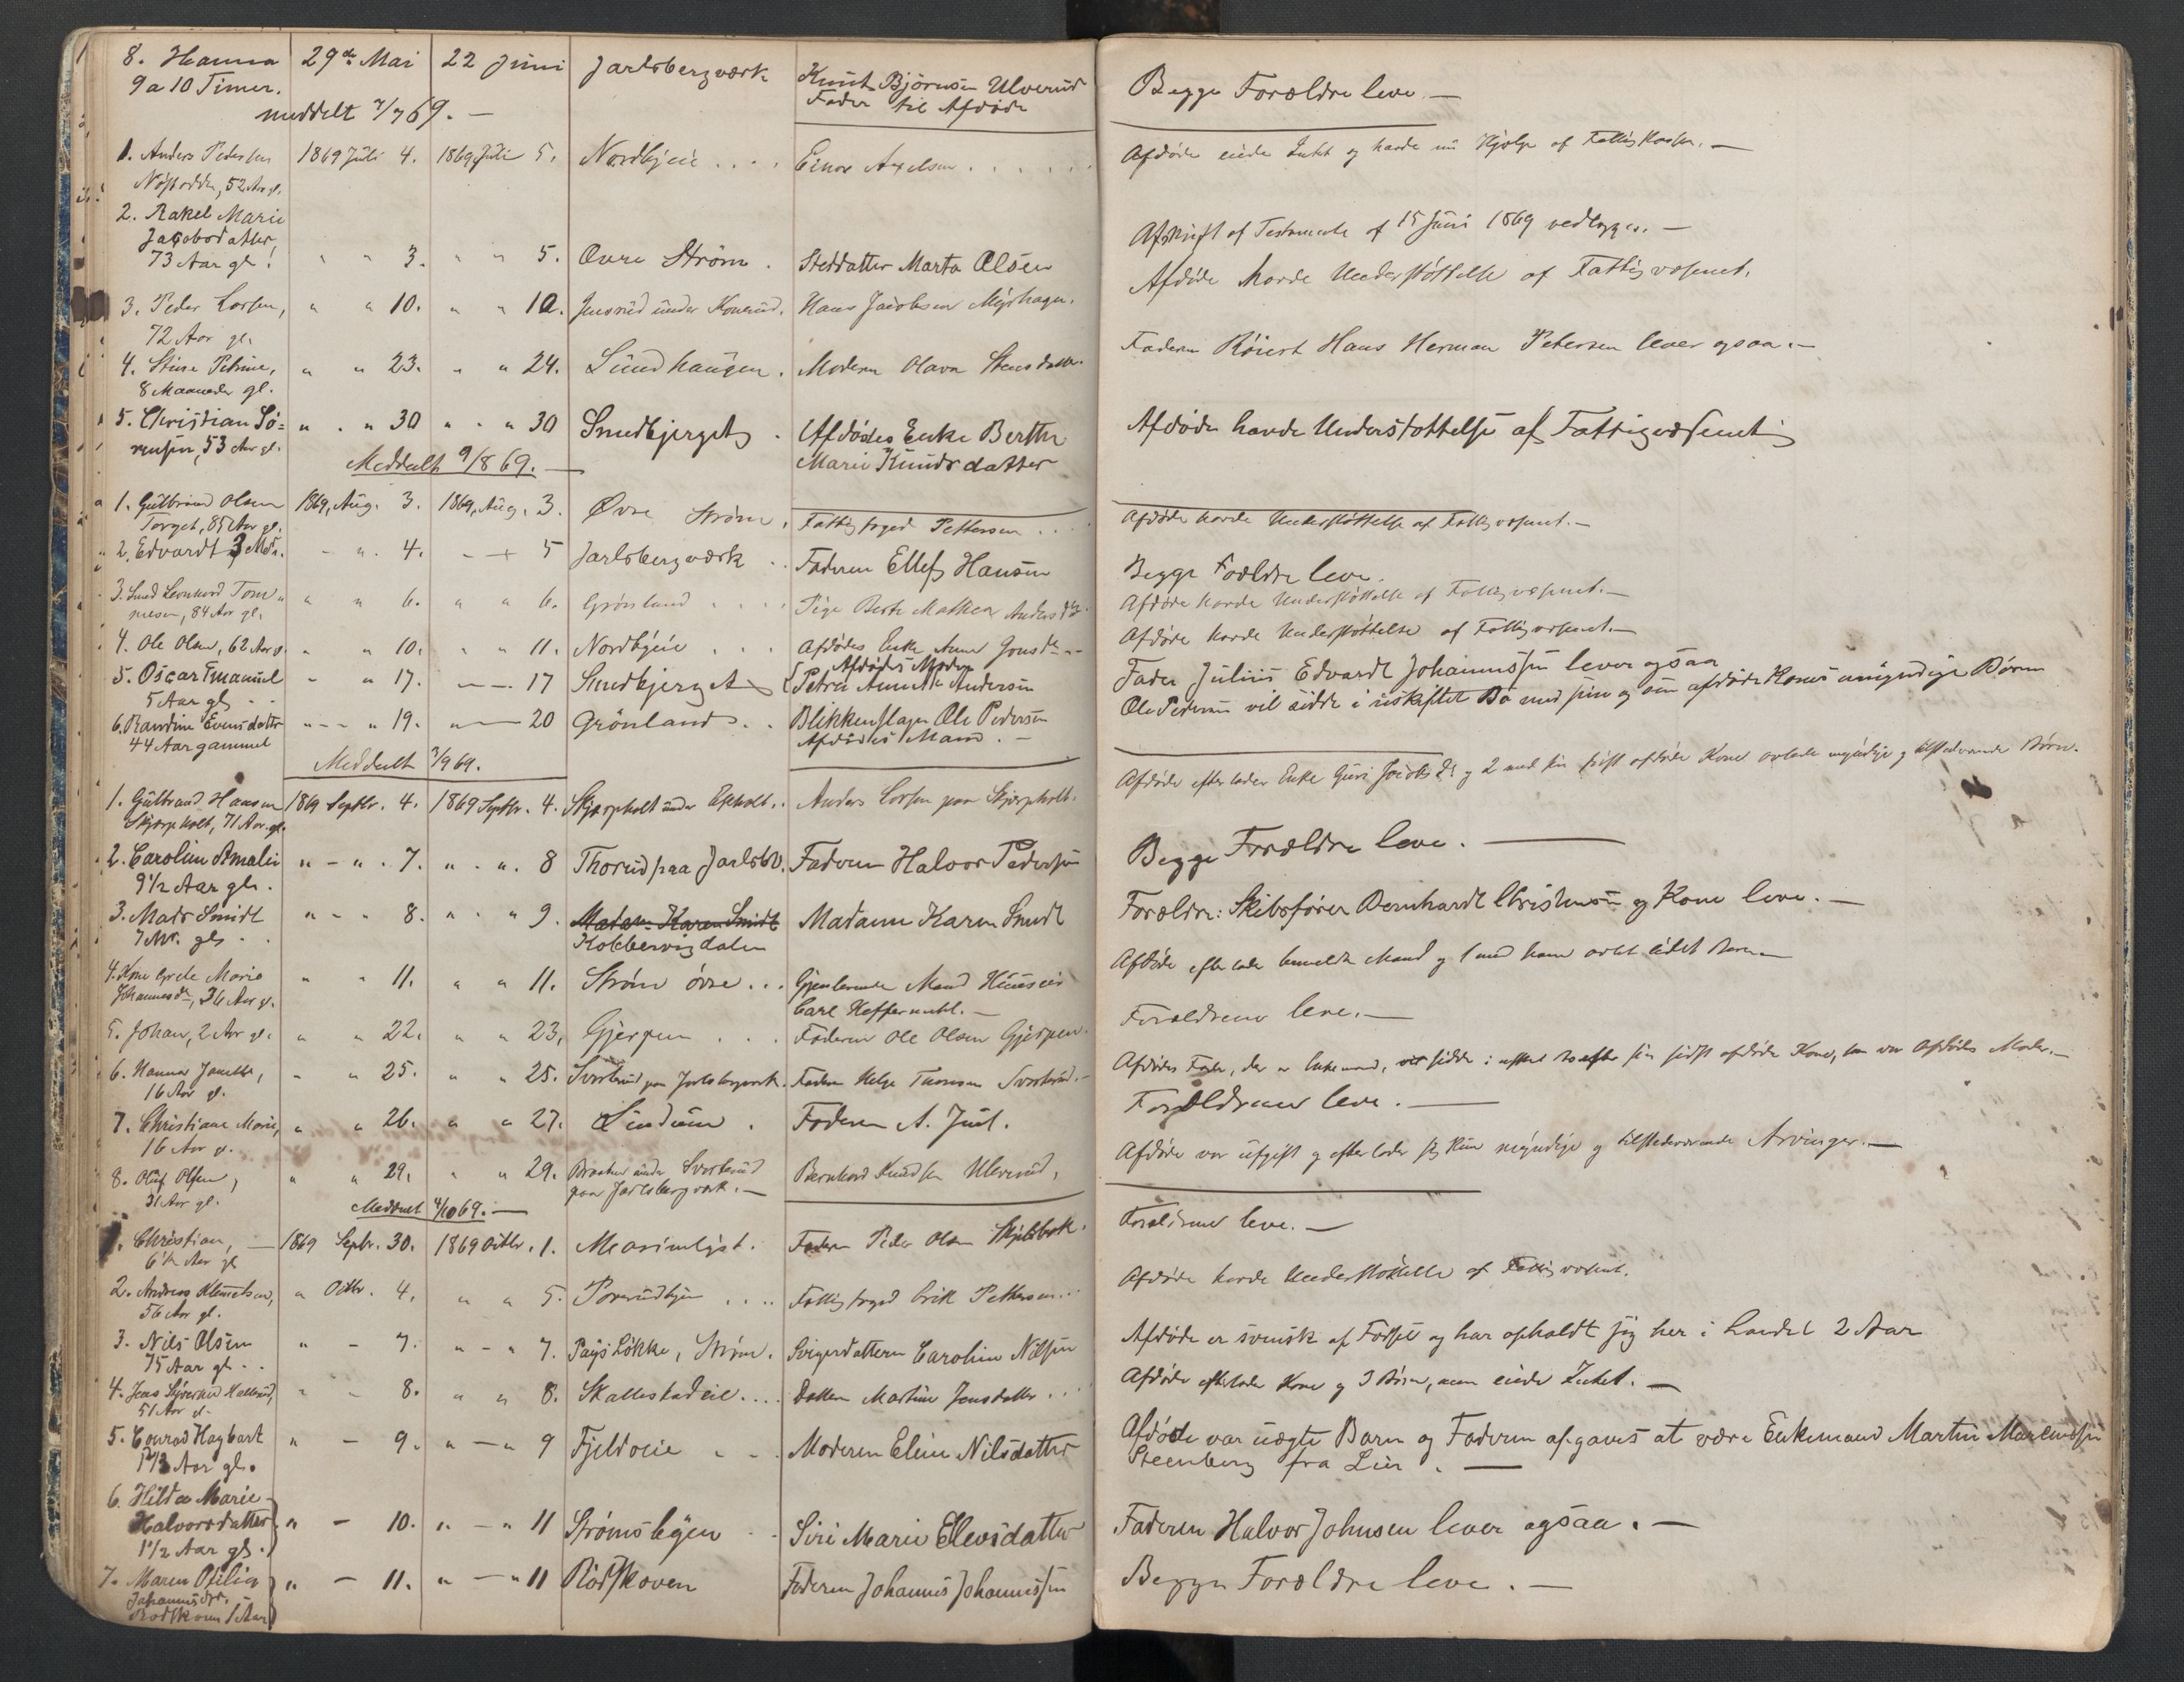 8. Hanna 29de Mai 22 Juni Jarlsbergværk Knut Bjørnsen Ulverud Begge Forældre leve. —
9 a 10 Timer. Fader til Afdøde
meddelt 7/7 69. —
1. Anders Pedersen 1869 Juli 4. 1869 Juli 5. Nordbyeie .... Einar Axelsen ..... Afdøde eiede Intet og havde Hjælp af Fattigkassen. —
52 Aar gl.
2. Rakel Marie
Jacobsdatter, Afskrift af Testamente af 15 Juni 1869 vedlægges. —
73 Aar gl. " " 3. " " 5. Øvre Strøm . Steddatter Marta Olsen
Afdøde havde Understøttelse af Fattigvæsenet.
3. Peder Larsen, " " 10. " " 10. under Konerud. Hans Jacobsen Myrhagen.
72 Aar gl.
4. Stine Petrine, " " 23. " " 24. Sundhaugen . Moderen Olava Stensdatter. Faderen Hans Herman Petersen lever ogsaa. —
8 Maaneder gl.
5. Christian Sø= " " 30 " " 30 Smedbjerget . Afdødes Enke Berthe Afdøde havde Understøttelse af Fattigvæsenet
rensen, 53 Aar gl. Marie Knudsdatter
Meddelt 9/8 69. —
1. Gulbrand Olsen 1869, Aug. 3. 1869, Aug. 3. Øvre Strøm. Fattigfoged Pettersen ... Afdøde havde Understøttelse af Fattigvæsenet. —
Torget, 85 Aar gl.
2. Edvardt 3 Mdr. - " 4. - " 5 Jarlsbergværk .. Faderen Ellef Hansen Begge Foældre leve.
3. Smed Leonhard Tom " " 6. " " 6. Grønland .... Pige Berte Mathea Afdøde havde Understøttelse af Fattigvæsenet. —
mesen, 84 Aar gl.
4. Ole Olsen, 62 Aar gl. " " 10. " " 11. Nordbyeie ... Afdødes Enke Anne Afdøde havde Understøttelse af Fattigvæsenet. —
5. Oscar Emanuel " " 17. — 17 Smedbjerget Afdødes Moder Fader Julius Edvardt Johannessen lever ogsaa
5 Aar gl .. Petra Annette Andersen
6. Randine Evensdatter " 19. — 20 Grönland .. Blikkenslager Ole Pedersen Ole Pedersen vil sidde i uskiftet Bo med sin og sin afdøde Kones umyndige Børn
44 Aar gammel Afdødes Mand. —
Meddelt 3/9 69.
1. Gulbrand Hansen 1869 Septbr. 4. 1869 Septbr. 4. Skjærpholt under Ekholt. Anders Larsen paa Skjærpholt. Afdøde efterlader Enke Guri Jacobsdr og 2 med sin først afdøde Kone avlede myndige og tilstedeværende Børn.
Skjærpholt, 71 Aar gl.
2. Caroline Amalie " - " 7. " " 8 Thorud paa Jarlsbv. Faderen Halvor Pedersen Begge Forældre leve. —
9 1/2 Aar gl.
3. Mads Smidt " - " 8. " " 9. Madam Karen Smidt Madame Karen Smidt Forældre: Skibsfører Bernhardt Christensen og Kone leve. —
7 Mr. gl .. Kobbervigdalen
4. Kone Grete Marie " " 11. " " 11. Strøm øvre ... Gjenlevende Mand Huuseier Afdøde efterlader bemeldte Mand og 1 med ham avlet lidet Barn —
Johannesdr, 36 Aar gl. Carl
5. Johan, 2 Aar gl. " " 22. " " 23. Gjerpen ... Faderen Ole Olsen Gjerpen. Forældrene leve. —
6. Hanna Janette, " " 25. " " 25. Svarterud paa Jarlsbergværk. Faderen Helge Thoresen Svarterud. — Afdødes Fader, der er Enkemand, sidder i uskiftet Bo efter sin sidst afdøde Kone, som var Afdødes Moder. —
16 Aar gl.
7. Christiane Marie, " " 26. " " 27. Lindum . Faderen A. Juul. Forældrene leve. —
16 Aar gl.
8. Oluf Olsen, " " 29. " " 29. Braaten under Svarterud Bernhard Knudsen Ulverud. Afdøde var ugift og efterlader sig kun myndige og tilstedeværende Arvinger. —
31 Aar gl. paa Jarlsbergværk. —
Meddelt 4/10 69. —
1. Christian, — 1869 Septbr. 30. 1869 Octbr. 1. Faderen Peder Olsen Forældrene leve. —
6 1/2 Aar gl
2. Andreas Klemetsen, " Octbr. 4. " " 5. .... Fattigfoged Erik Pettersen ... Afdøde havde Understøttelse af Fattigvæsenet.
56 Aar gl.
3. Nils Olsen " - 7. " - " 7. Pays Løkke, Strøm. Svigerdatteren Caroline Nilsen Afdøde er svensk af Fødsel og har opholdt sig her i Landet 2 Aar
75 Aar gl ..
4. Jens " - 8. " " 8. Skallestadeie .... Datter Martine Jensdatter ... Afdøde efterlader Kone og 3 Børn, men eiede Intet. —
51 Aar gl.
5. Conrad Hagbart " - 9. " — " 9 Fjeldseie .. . Moderen Eline Nilsdatter Afdøde var uægte Barn og Faderen af-gaves at være Enkemand Martin Martinsen
Aar gl. Steenberg fra Lier. —
6. Hilda Marie
Halvorsdatter " - 10. " — " 11 Strømsbyen .. Siri Marie Elevsdatter Faderen Halvor Johnsen lever ogsaa. —
1 1/2 Aar gl.
7. Maren Otilia " - 11. " — " 11 Rødskoven Faderen Johannes Johannessen Begge Forældre leve. —
Johannesdtr.
Rødskoven 1 Aar